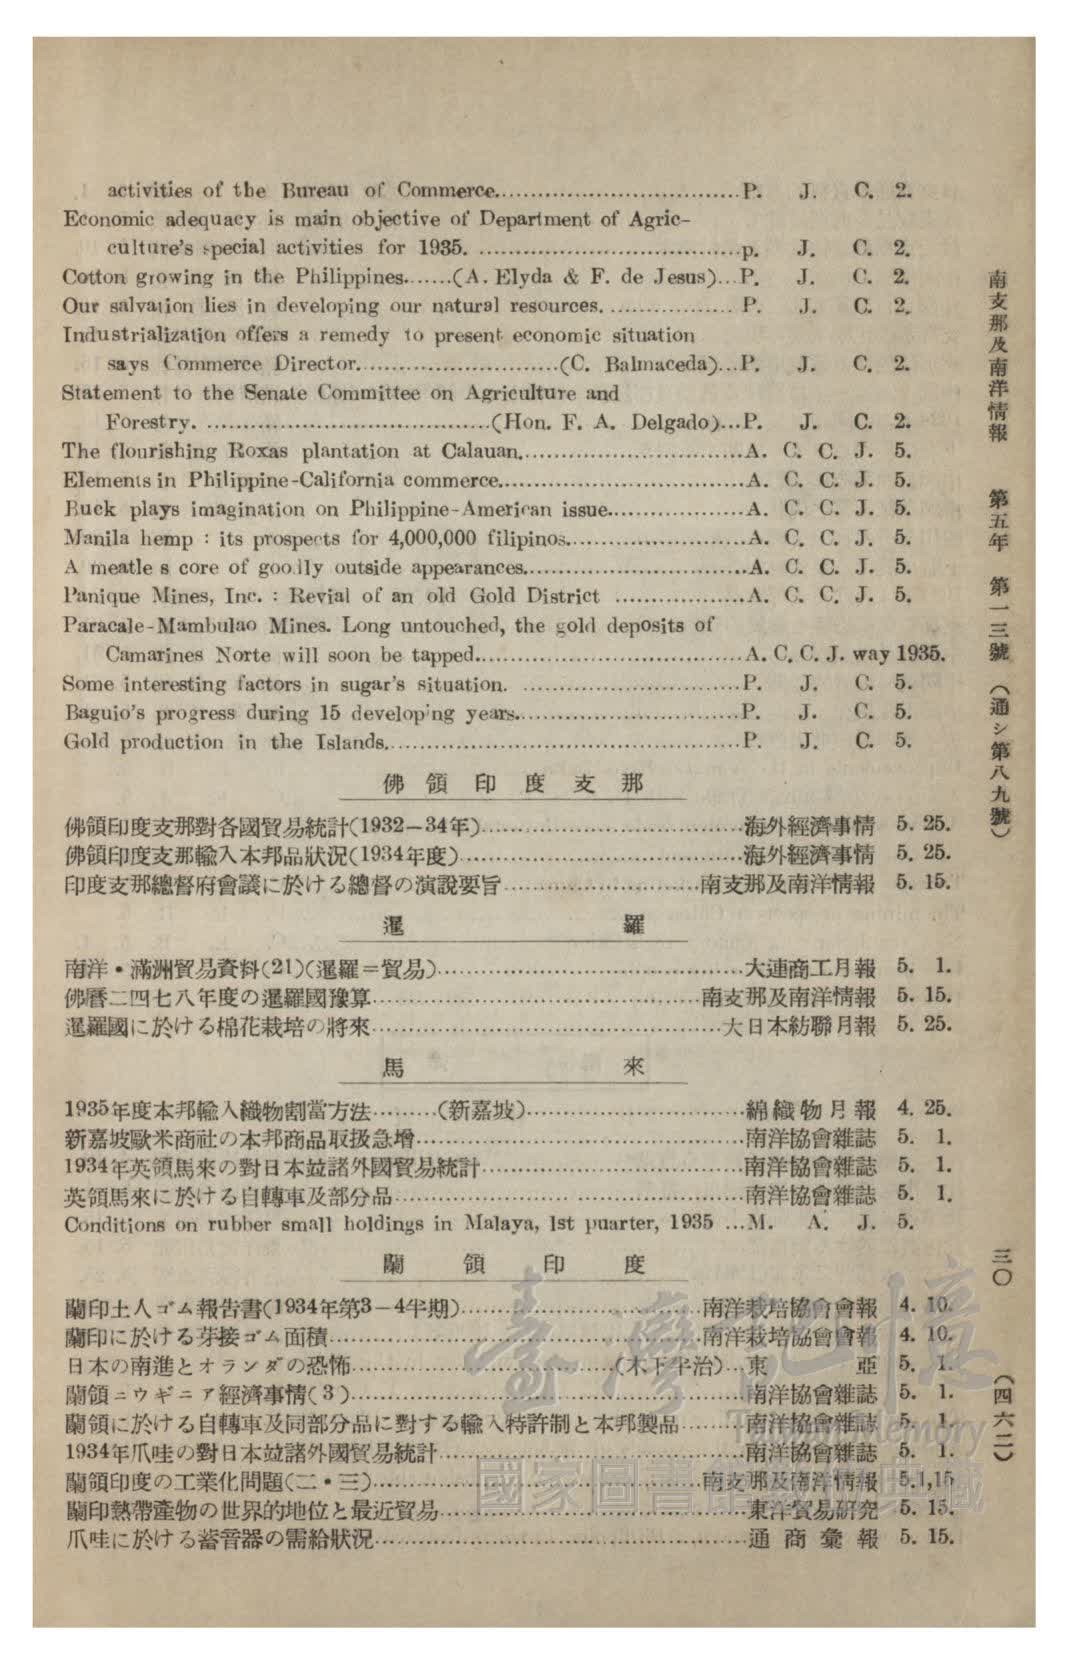 activities of the Bureau of Commerce................................P. J. C. 2.
Economic adequacy is main objective of Department of Agric-
culture's special activities for 1935. ..................................p. J. C. 2.
Cotton growing in the Philippines.......(A. Elyda & F. de Jesus)...P. J. C. 2.
Our salvation lies in developing our natural resources. ................. P. J. C. 2.
Industrialization offers a remedy to present economic situation
says Commerce Director............................(C. Balmaceda)...P. J. C. 2.
Statement to the Senate Committee on Agriculture and
Forestry. ......................................(Hon. F. A. Delgado)...P. J. C. 2.
The flourishing Roxas plantation at Calauan..............................A. C. C. J. 5.
Elements in Philippine-California commerce.................................A. C. C. J. 5.
Buck plays imagination on Philippine-American issue...................A. C. C. J. 5.
Manila hemp : its prospects for 4,000,000 filipinos.........................A. C. C. J. 5.
A meatle s core of goodly outside appearances..............................A. C. C. J. 5.
Panique Mines, Inc. : Revial of an old Gold District ..................A. C. C. J. 5.
Paracale-Mambulao Mines. Long untouched, the gold deposits of
Camarines Norte will soon be tapped....................................A. C. C. J. way 1935.
Some interesting factors in sugar's situation. ..............................P. J. C. 5.
Baguio's progress during 15 developing years...............................P. J. C. 5.
Gold production in the Islands................................................P. J. C. 5.
佛領印度支那
佛領印度支那對各國貿易統計(1932—34年)....................................海外經濟事情 5. 25.
佛領印度支那輸入本邦品狀況(1934年度).......................................海外經濟事情 5. 25.
印度支那總督府會議に於ける總督の演說要旨...........................南支那及南洋情報 5. 15.
暹羅
南洋・滿洲貿易資料(21)(暹羅＝貿易)..........................................大連商工月報 5. 1.
佛曆二四七八年度の暹羅國豫算.............................................南支那及南洋情報 5. 15.
暹羅國に於ける棉花栽培の將來................................................大日本紡聯月報 5. 25.
馬來
1935年度本邦輸入織物割當方法.........(新嘉坡)..............................綿織物月報 4. 25.
新嘉坡歐米商社の本邦商品取扱急增.............................................南洋協會雜誌 5. 1.
1934年英領馬來の對日本竝諸外國貿易統計....................................南洋協會雜誌 5. 1.
英領馬來に於ける自轉車及部分品................................................南洋協會雜誌 5. 1.
Conditions on rubber small holdings in Malaya, 1st puarter, 1935 ...M. A. J. 5.
蘭領印度
蘭印土人ゴム報告書(1934年第3—4半期).................................南洋栽培協會會報 4. 10.
蘭印に於ける芽接ゴム面積...................................................南洋栽培協會會報 4. 10.
日本の南進とオランダの恐怖....................................(木下半治)...東亞 5. 1.
蘭領ニウギニア經濟事情(3)......................................................南洋協會雜誌 5. 1.
蘭領に於ける自轉車及同部分品に對する輸入特許制と本邦製品.........南洋協會雜誌 5. 1.
1934年爪哇の對日本竝諸外國貿易統計..........................................南洋協會雜誌 5. 1.
蘭領印度の工業化問題(二・三).............................................南支那及南洋情報 5.1,15
蘭印熱帶產物の世界的地位と最近貿易..........................................東洋貿易研究 5. 15.
爪哇に於ける蓄音器の需給狀況...................................................通商彙報 5. 15.
南支那及南洋情報 第五年 第一三號 (通シ第八九號)
三〇
(四六二)
臺灣記憶
Taiwan Memory
國家圖書館數位典藏